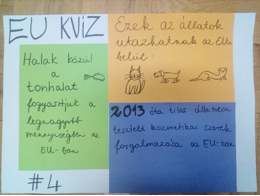 EU KVÍZ
Ezek az állatok
utazhatnak az EU-n
belül
Halak közül
a
tonhalat
fogyasztjuk a
legnagyobb
mennyiségben az
EU-ban
2013 óta tilos állatokon
tesztelt kozmetikai szerek
forgalmazása az EU-ban
#4